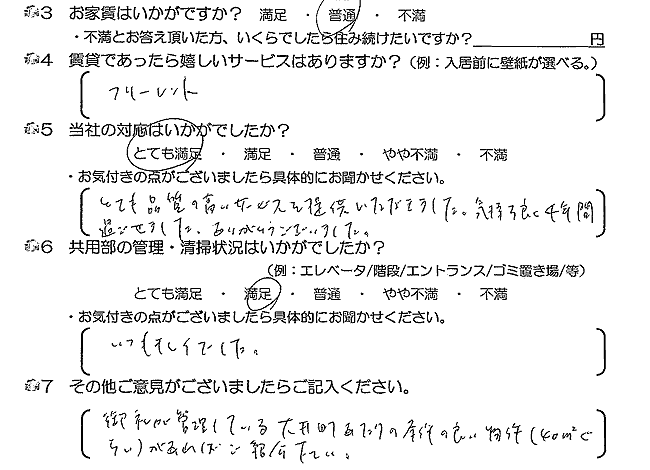 3 お家賃はいかがですか? 満足 ・ 普通 ・ 不満
・不満とお答え頂いた方、いくらでしたら住み続けたいですか? 円
4 賃貸であったら嬉しいサービスはありますか?(例:入居前に壁紙が選べる。)
フリーレント
5 当社の対応はいかがでしたか?
とても満足 ・ 満足 ・ 普通 ・ やや不満 ・ 不満
・お気付きの点がございましたら具体的にお聞かせください。
とても品質の高いサービスを提供いただきました。気持ち良く4年間
過ごせました。ありがとうございました。
6 共用部の管理・清掃状況はいかがでしたか?
(例:エレベータ/階段/エントランス/ゴミ置き場/等)
とても満足 ・ 満足 ・ 普通 ・ やや不満 ・ 不満
・お気付きの点がございましたら具体的にお聞かせください。
いつもキレイでした。
7 その他ご意見がございましたらご記入ください。
御社が管理している大井町あたりの条件の良い物件(40m²ぐ
らい)があればご紹介下さい。